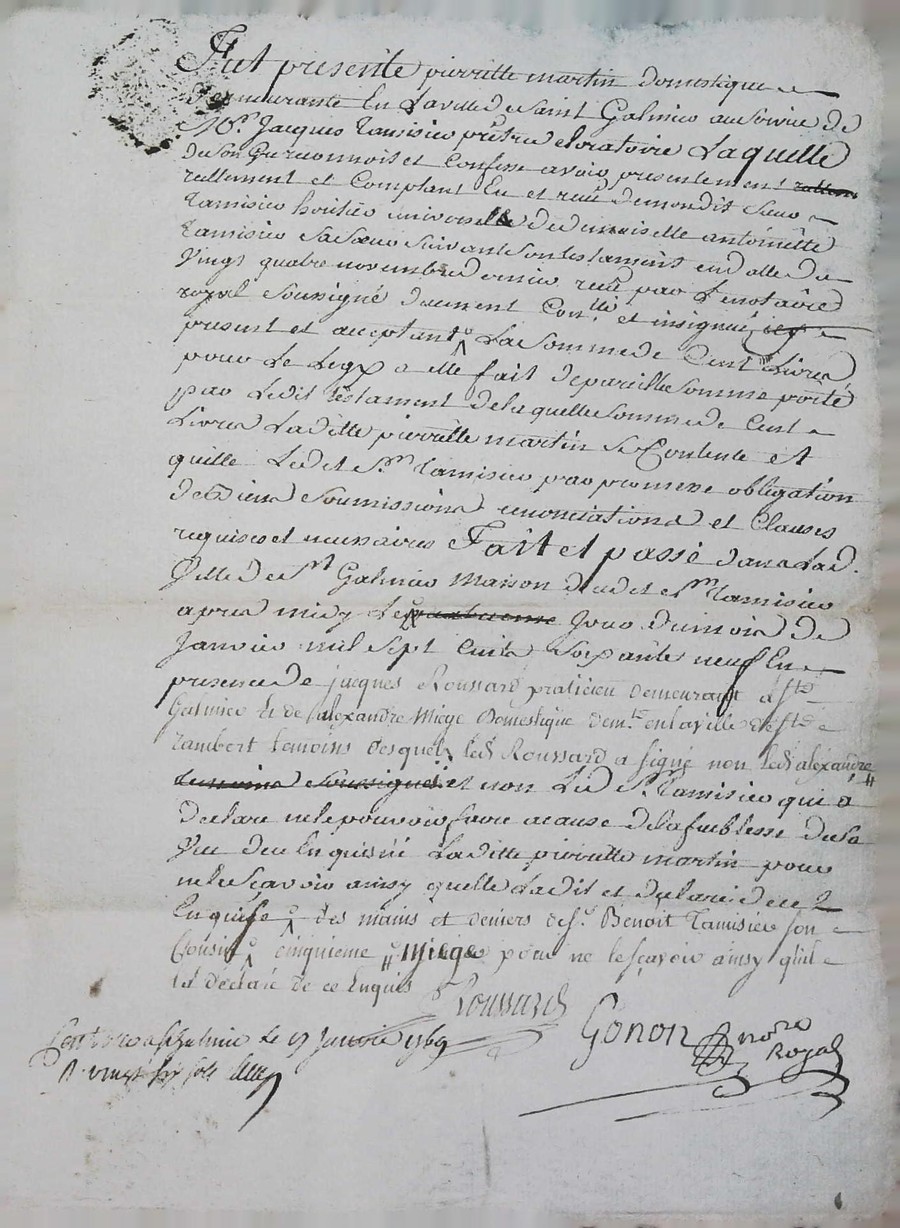 Fut presente pierrette martin domestique
demeurante En La ville de Saint Galmier au service de
Mre. Jacques Tamisier prêtre et oratoire Laquelle
de son Gré reconnoit et Confesse avoir presentement
reellement et Comptant Eu et reçu de mondit Sieur
Tamisier heritier universelle de demoiselle antoinette
Tamisier Sa Soeur Suivant Son testament en datte du
Vingt quatre novembre dernier reçu par Le notaire
royal Soussigné duement Conllé et insignué icy
present et acceptant La Somme de Cent Livres
pour Le Legx a elle fait de pareille Somme porté
par Ledit testament de laquelle Somme de Cent
Livres Laditte pierrette martin Se Contente et
quitte Ledit Sr. Tamisier par promesse obligation
de Biens Soumissions renonciations et Clauses
requises et necessaires Fait et passé dans Lad.
Ville de St Galmier Maison dudit Sr. Tamisier
apres midy Le quatrieme Jour du mois de
Janvier mil Sept Cents Soixante neuf En
presence de jacques Roussard praticien demeurant a St.
Galmier et de S. alexandre Miege Domestique demt. en la ville de St.
rambert temoins desquels led. Roussard a signé non led. alexandre
temoins Soussignés et non Led. Sr. Tamisier qui a
declaré ne le pouvoir faire a cause de la faiblesse de Sa
Vue de ce Enquis ni Laditte pierrette martin pour
ne le Sçavoir ainsy quelle La dit et declaré de ce
Enquise des mains et deniers de Sr. Benoit Tamisier son
Cousin cinquieme Miege pour ne le sçavoir ainsy quil
la déclaré de ce Enquis
Roussard
Gonon nore
Royal
Cont. re a St galmier le 17 Janvier 1769
R vingt six sols